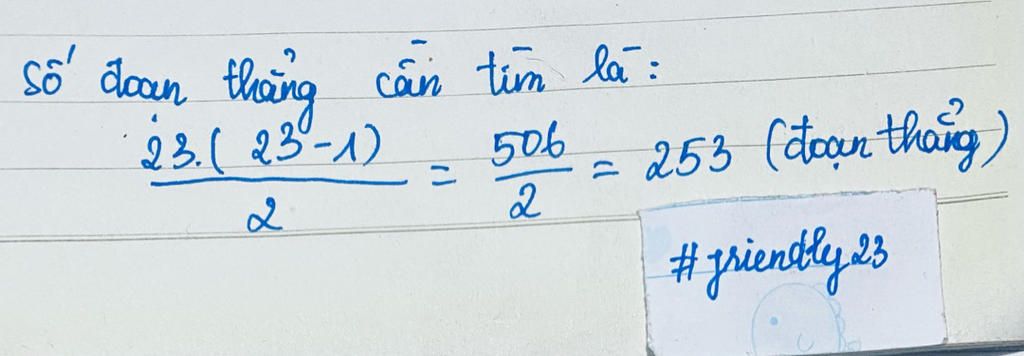 Số đoạn thẳng cần tìm là:
23.(23-1)/2 = 506/2 = 253 (đoạn thẳng)
#friendly23